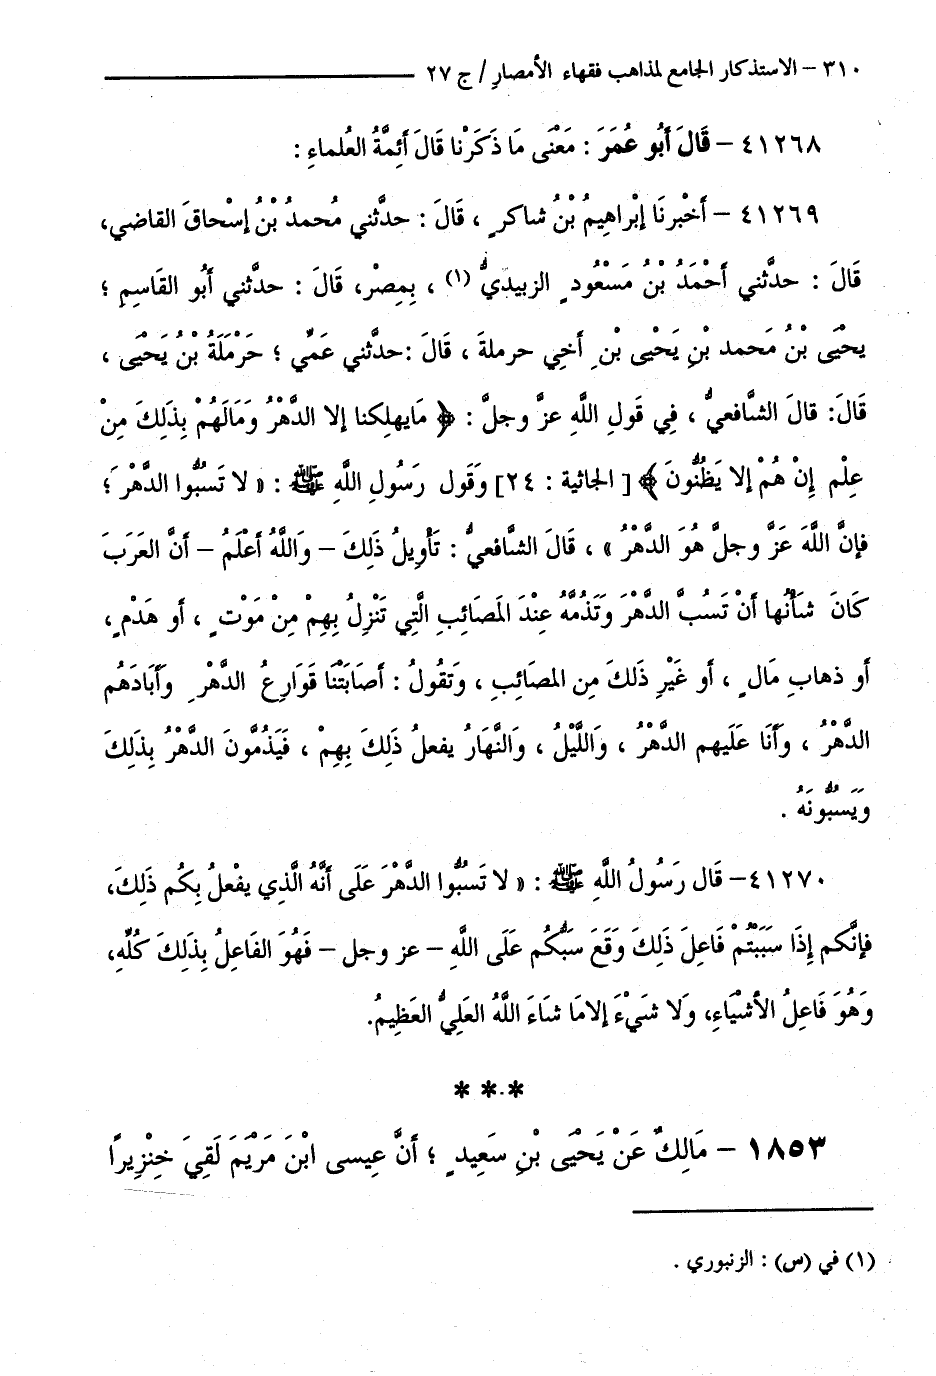 ٣١٠ – الاستذكار الجامع لمذاهب فقهاء الأمصار / ج ٢٧
٤١٢٦٨ – قَالَ أَبُو عُمَرَ : مَعْنَى مَا ذَكَرْنا قَالَ أَئِمَّةُ العُلماءِ :
٤١٢٦٩ – أَخْبرنَا إبْراهِيمُ بْنُ شاكرٍ ، قَالَ : حدَّثني مُحمدُ بْنُ إِسْحاقَ القاضي،
قَالَ : حدَّثني أَحْمَدُ بْنُ مَسْعُودٍ الزبيديُّ (١) ، بِمِصْرَ، قَالَ : حدَّثني أَبُو القَاسِمِ ؛
يحْيَى بْنُ مُحَمد بْنِ يَحْيَى بْنِ أَخِي حرملةَ ، قَالَ :حدَّثني عَمِّي ؛ حَرْمَلَةُ بْنُ يَحْيَى ،
قَالَ: قالَ الشَّافعيُّ ، فِي قَولِ اللَّهِ عزَّ وجلَّ : ﴿ مَايهلِكنا إلا الدَّهْرُ وَمَالَهُمْ بِذَلِكَ مِنْ
عِلْمٍ إِنْ هُمْ إلا يَظُنُّونَ ﴾ [ الجاثية : ٢٤] وَقَول رَسُولِ اللَّهِ ﷺ : « لا تَسُبُّوا الدَّهْرَ ؛
فإنَّ اللَّهَ عَزَّ وجلَّ هُوَ الدَّهْرُ » ، قَالَ الشَّافعيُّ : تَأْوِيلُ ذَلِكَ – وَاللَّهُ أعْلَمُ – أنَّ العَرَبَ
كَانَ شَأْنُها أنْ تَسُبَّ الدَّهْرَ وَتَذُمَّهُ عِنْدَ المَصَائِبِ الَّتِي تَنْزِلُ بِهِمْ مِنْ مَوْتٍ ، أو هَدْمٍ ،
أو ذهابِ مَالٍ ، أو غَيْرِ ذَلكَ مِن المصَائِبِ ، وَتَقُولُ : أصَابَتْنا قَوَارِعُ الدَّهْرِ وأَبَادَهُم
الدَّهْرُ ، وأَنَا عَلَيهم الدَّهْرُ ، وَاللَّيْلُ ، وَالنَّهَارُ يفعلُ ذَلِكَ بِهِمْ ، فَيَذُمُّونَ الدَّهْرُ بِذَلِكَ
وَيَسُبُّونَهُ .
٤١٢٧٠– قَال رَسُولُ اللَّهِ ﷺ : « لا تَسُبُّوا الدَّهْرَ عَلَى أنَّهُ الَّذِي يفْعلُ بِكُم ذَلِكَ،
فإنَّكم إذَا سَبَبْتُمْ فَاعِلَ ذَلِكَ وَقَعَ سَبُّكُم عَلَى اللَّهِ – عز وجل – فَهُوَ الفَاعِلُ بِذَلِكَ كُلِّهِ،
وَهُوَ فَاعِلُ الأشْيَاءِ، وَلا شَيْءَ إلامَا شَاءَ اللَّهُ العَلِيُّ العَظِيمُ.
* * *
١٨٥٣ – مَالِكٌ عَنْ يَحْيَى بْنِ سَعِيدٍ ؛ أنَّ عِيسى ابْنَ مَرْيَمَ لَقِيَ خِنْزِيرًا
(١) في (س) : الزنبوري .